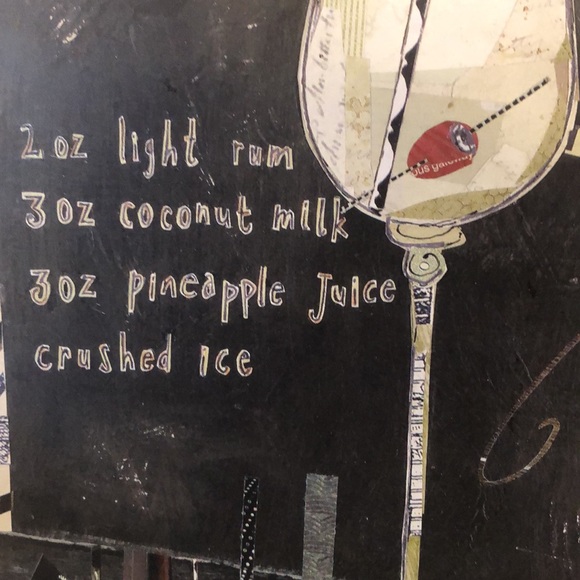 2 oz light rum
3 oz coconut milk
3 oz pineapple Juice
crushed ice